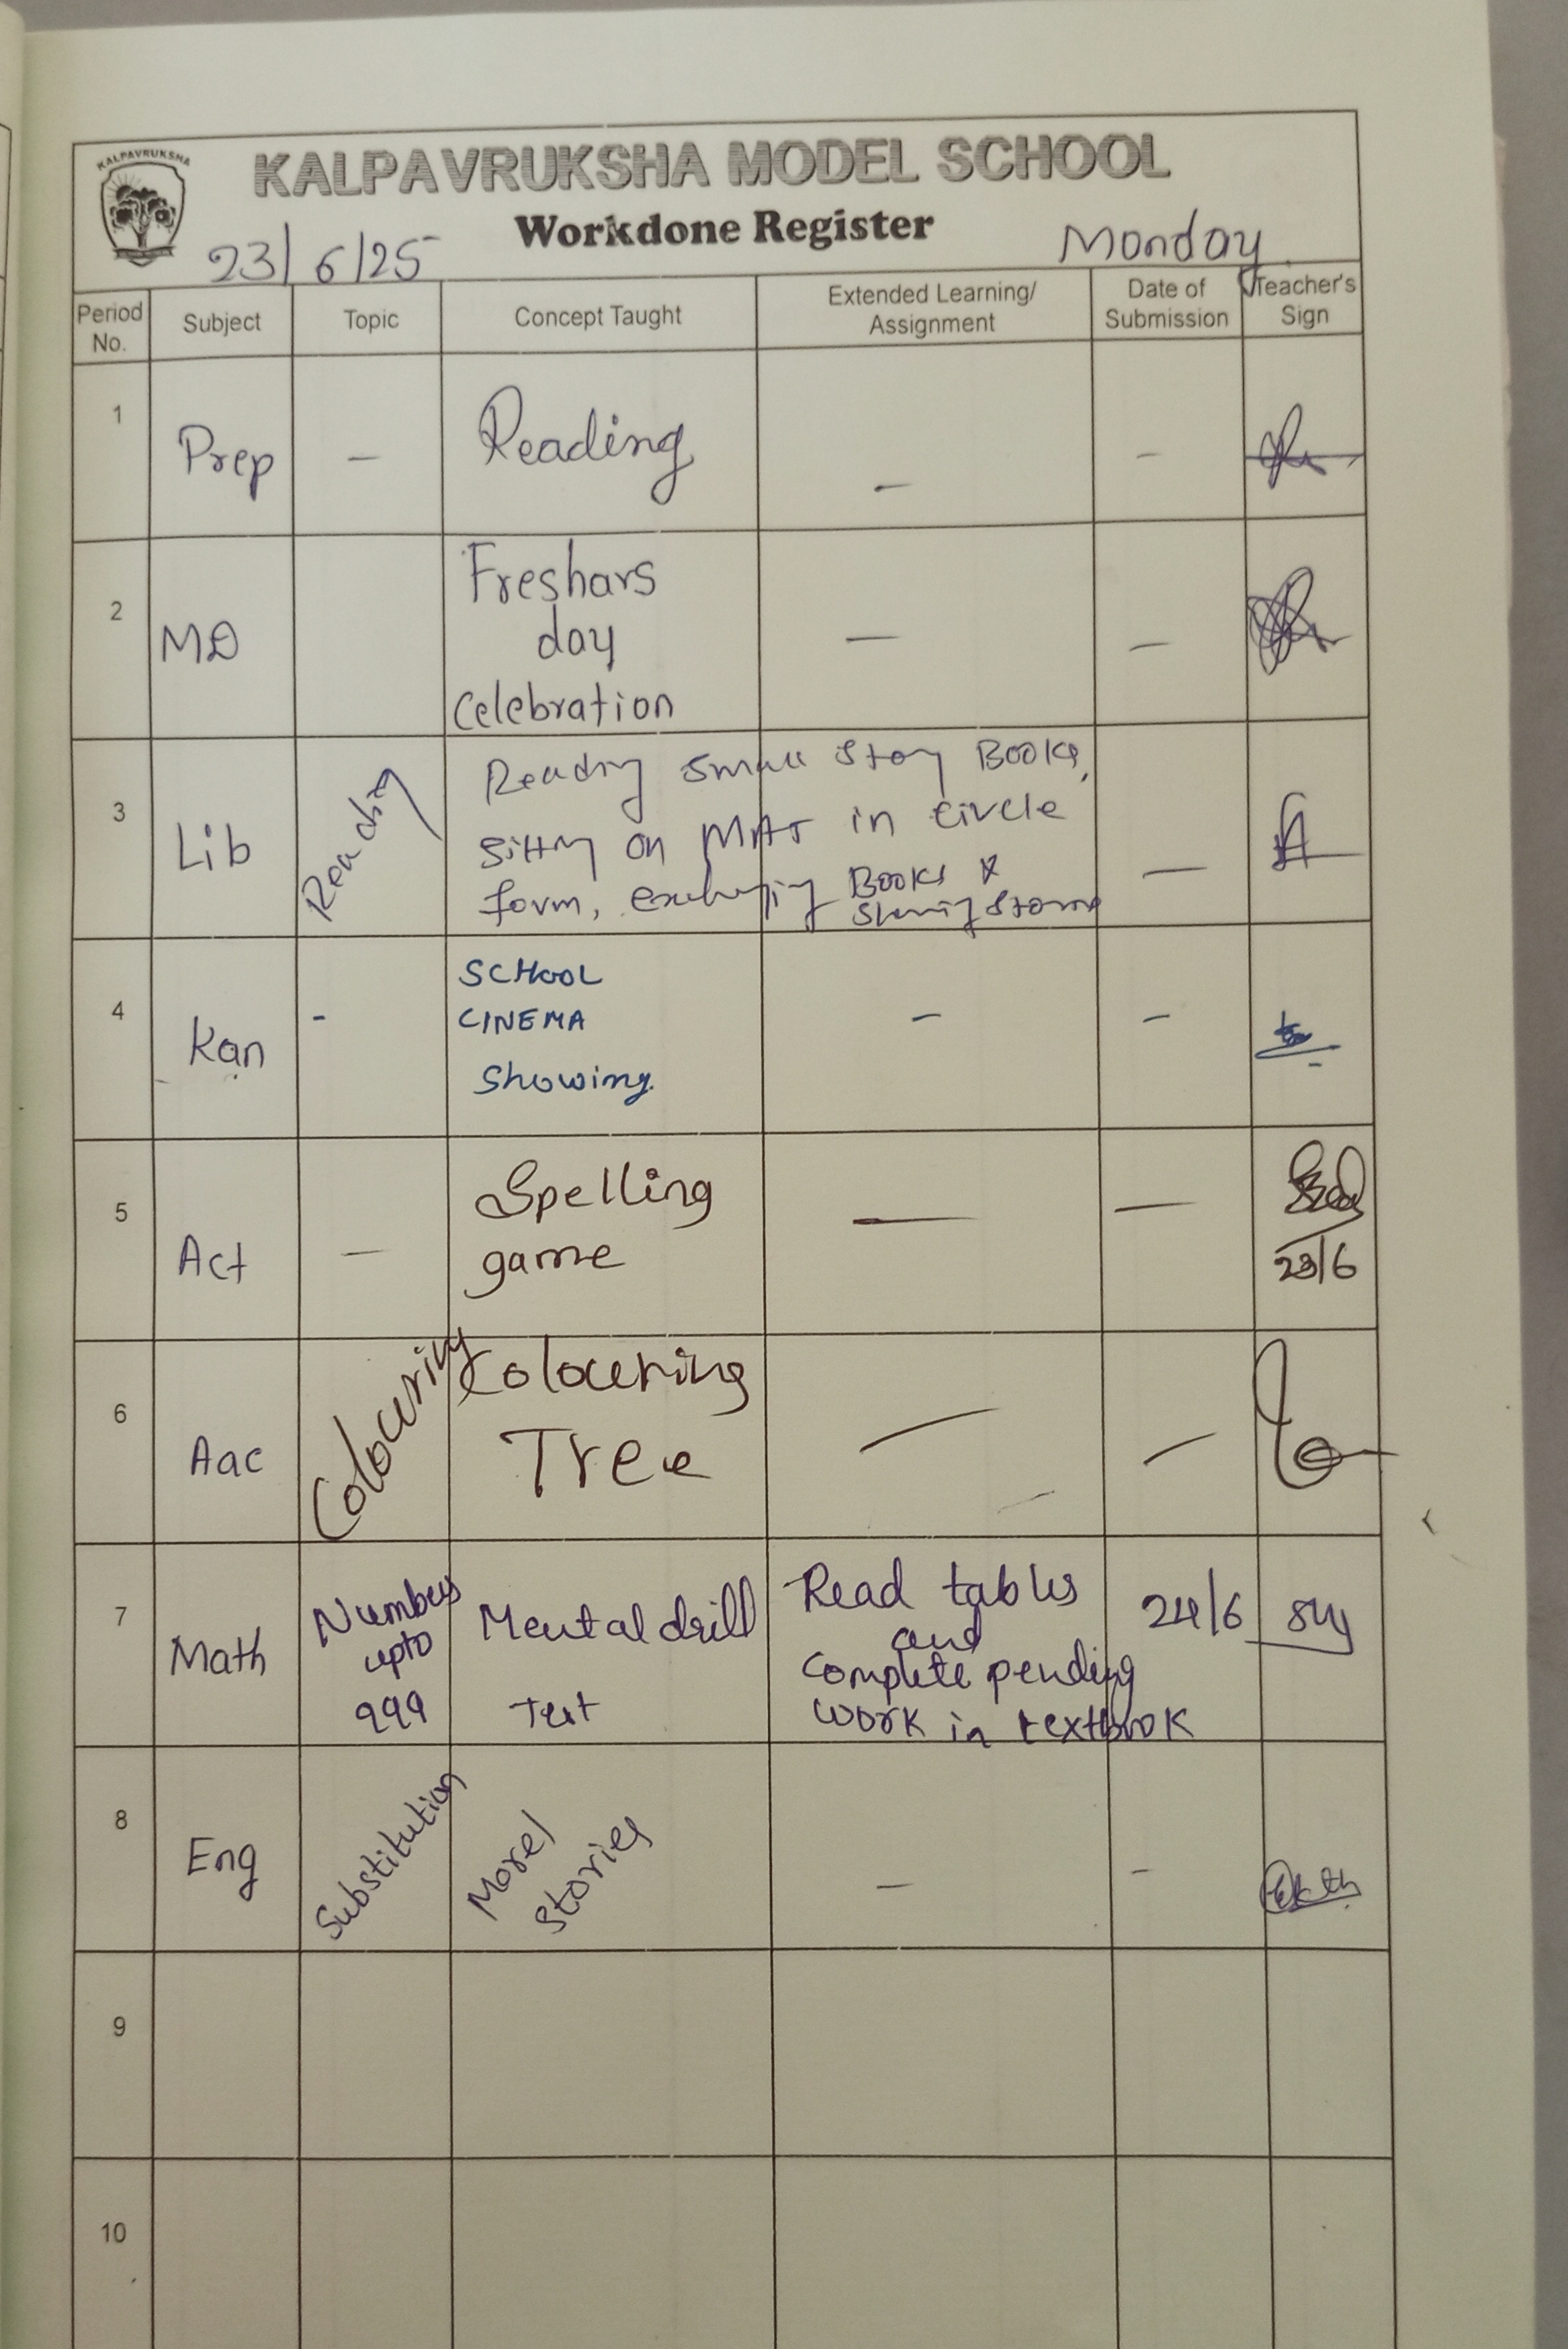 KALPAVRUKSHA
KALPAVRUKSHA MODEL SCHOOL
Workdone Register
23/6/25 Monday
Period No. Subject Topic Concept Taught Extended Learning/ Assignment Date of Submission Teacher's Sign
1 Prep – Reading – –
2 MD Freshars day Celebration – –
3 Lib Reading Reading small story Books,
sitting on MAT in circle
form, exchanging Books &
sharing stories –
4 Kan - SCHOOL
CINEMA
Showing. – –
5 Act – Spelling
game – –
23/6
6 Aac Colouring Colouring
Tree – –
7 Math Numbers
upto
999 Mental drill
Test Read tables
and
complete pending
work in textbook 24/6
8 Eng Substitution Morel
stories – –
9
10